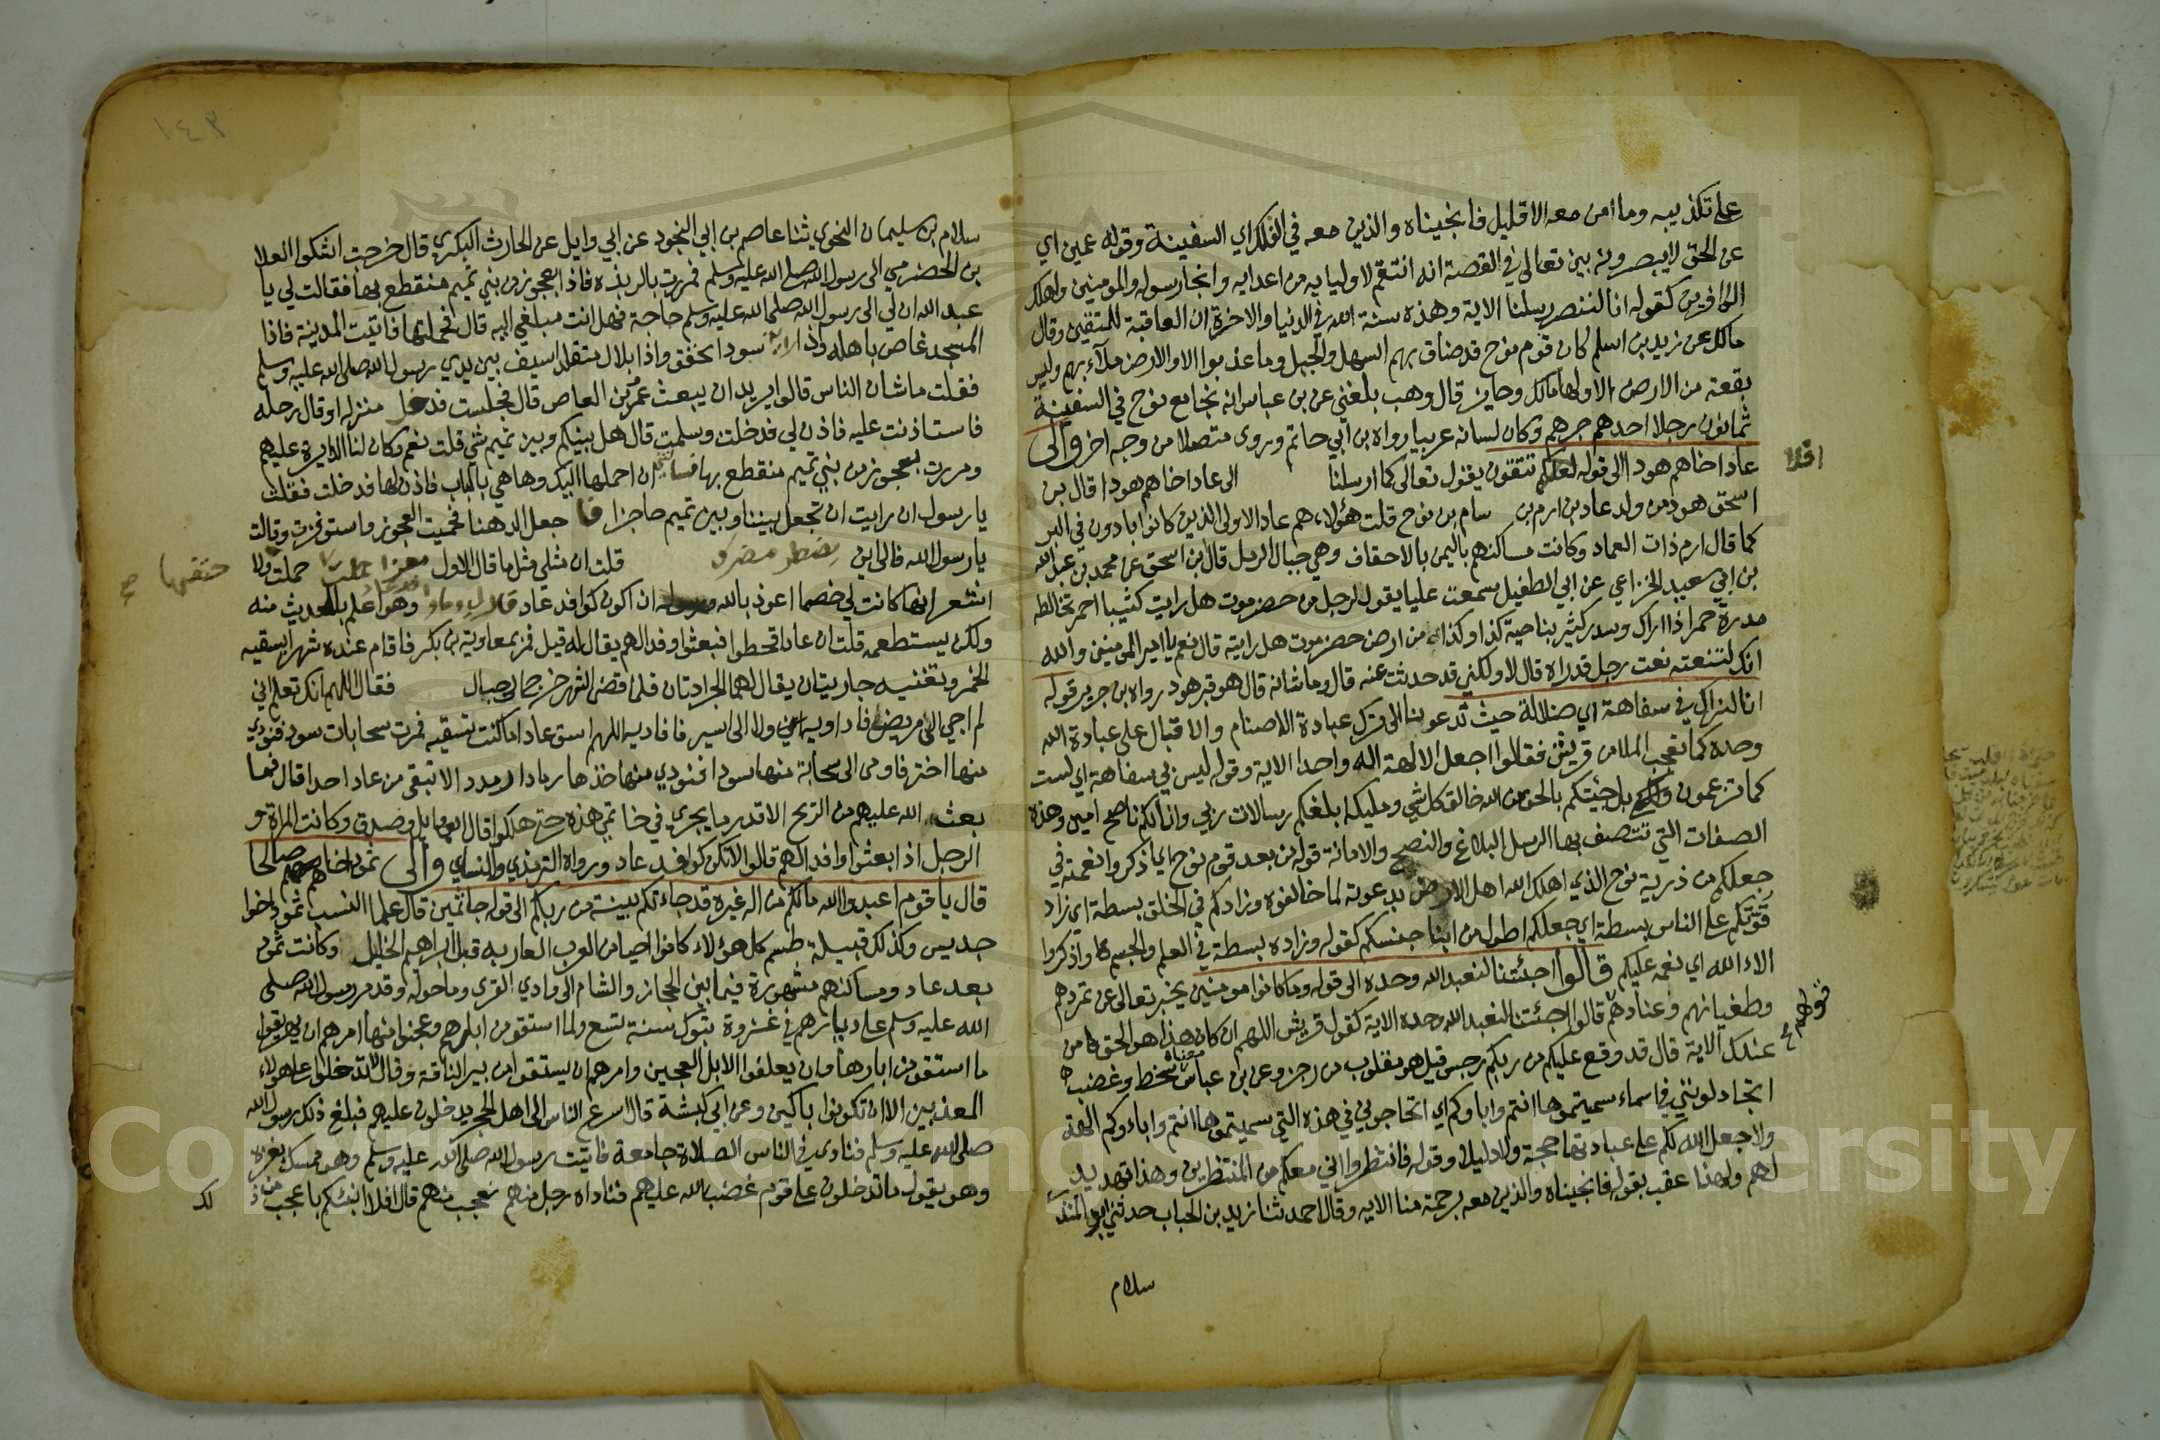 على تكذيبه وما امن معه الا قليل فانجيناه والذين معه في الفلك اي السفينة وقوله عمين اي
عن الحق لا يبصرونه بين تعالى في القصة انه انتقم لاوليايه من اعدايه وانجا رسوله والمومنين واهلك
الكافرين كقوله انا لننصر رسلنا الاية وهذه سنة الله في الدنيا والاخرة ان العاقبة للمتقين وقال
مالك عن زيد بن اسلم كان قوم نوح قد ضاق بهم السهل والجبل وما عذبوا الا والارض ملآء بهم وليس
بقعة من الارض الا ولها مالك وحايز قال وهب بلغني عن بن عباس انه نجا مع نوح في السفينة
ثمانون رجلا احدهم جرهم وكان لسانه عربيا رواه بن ابي حاتم وروى متصلا من وجه اخر والى
عاد اخاهم هودا الى قوله لعلكم تتقون يقول تعالى كما ارسلنا الى عاد اخاهم هودا قال بن
افلا
اسحق هود من ولد عاد بن ارم بن سام بن نوح قلت هؤلاء هم عاد الاولى الذين كانوا يادون في البر
كما قال ارم ذات العماد وكانت مساكنهم باليمن بالاحقاف وهي جبال الرمل قال بن اسحق عن محمد بن عبد الله
بن ابي سعيد الخزاعي عن ابي الطفيل سمعت عليا يقول لرجل من حضرموت هل رايت كثيبا احمر تخالطه
مدرة حمرا ذا اراك وسدر كثير بناحية كذا وكذا من ارض حضرموت هل رايته قال نعم يا امير المومنين والله
انك لتنعته نعت رجل قد راه قال لا ولكني قد حدثت عنه قال وما شانه قال هو قبر هود رواه بن جرير قوله
انا لنراك في سفاهة اي ضلالة حيث تدعوننا الى ترك عبادة الاصنام والاقبال على عبادة الله
وحده كما تعجب الملا من قريش فقالوا اجعل الالهة اله واحدا الاية وقوله ليس بي سفاهة اي لست
كما تزعمون بل جئتكم بالحق من الله خالق كل شي ومليكه ابلغكم رسالات ربي وانا لكم ناصح امين وهذه
الصفات التي تتصف بها الرسل البلاغ والنصح والامانة قوله من بعد قوم نوح اي اذكروا نعمته في
جعلكم من ذرية نوح الذي اهلك الله اهل الارض بدعوته لما خالفوه وزادكم في الخلق بسطة اي زاد
قوتكم على الناس بسطة اي جعلكم اطول من ابنا جنسكم كقوله وزاده بسطة في العلم والجسم واذكروا
الاء الله اي نعمه عليكم قالوا اجئتنا لنعبد الله وحده الى قوله وما كانوا مومنين يخبر تعالى عن تمردهم
وطغيانهم وعنادهم قالوا اجئتنا لنعبد الله وحده الاية كقول قريش اللهم ان كان هذا هو الحق من
عندك الاية قال قد وقع عليكم من ربكم رجس قيل هو مقلوب من رجز وعن بن عباس سخط وغضب
اتجادلونني في اسماء سميتموها انتم واباوكم اي اتحاجوني في هذه التي سميتموها انتم واباءوكم الهة
ولا جعل الله لكم على عبادتها حجة ولا دليلا وقوله فانتظروا اني معكم من المنتظرين وهذا تهديد
لهم ولهذا عقب بقوله فانجيناه والذين معه برحمة منا الايه وقال احمد ثنا زيد بن الحباب حدثني ابو المنذر
سلام
١٤٣
سلام بن سليمان النحوي ثنا عاصم بن ابي النجود عن ابي وايل عن الحارث البكري قال خرجت اشكوا العلا
بن الحضرمي الى رسول الله صلى الله عليه وسلم فمررت بالربذه فاذا بعجوز من بني تميم منقطع بها فقالت لي يا
عبد الله ان لي الى رسول الله صلى الله عليه وسلم حاجة فهل انت مبلغي اليه قال فحملتها فاتيت المدينة فاذا
المسجد غاص باهله واذا راية سودا تخفق واذا بلال متقلد السيف بين يدي رسول الله صلى الله عليه وسلم
فقلت ما شان الناس قالوا يريد ان يبعث عمرو بن العاص قال فجلست فدخل منزله او قال رحله
فاستاذنت عليه فاذن لي فدخلت وسلمت قال هل بينكم وبين تميم شي قلت نعم وكان لنا الدايرة عليهم
ومررت بعجوز من بني تميم منقطع بها فسالتني ان احملها اليك وها هي بالباب فاذن لها فدخلت فقلت
يا رسول ان رايت ان تجعل بيننا وبين تميم حاجزا جعل الدهنا فحميت العجوز واستوفزت وقالت
يا رسول الله فالى اين يضطر مضرك قلت ان مثلي مثل ما قال الاول معزا حملت ولا
حتفها
اشعر انها كانت لي خصما اعوذ بالله ان اكون كوافد عاد وهو اعلم بالحديث منه
ولكن يستطعمه قلت ان عادا قحطوا فبعثوا وفدا لهم يقال له قيل فمر بمعاوية بن بكر فاقام عنده شهرا يسقيه
الخمر وتغنيه جاريتان يقال لهما الجرادتان فلما قضى الشهر خرج الى جبال فقال اللهم انك تعلم اني
لم اجي الى مريض فاداويه ولا الى اسير فافاديه اللهم اسق عادا ما كنت تسقيه فمرت سحابات سود فنودي
منها اختر فاومى الى سحابة منها سودا فنودي منها خذها رمادا رمددا لا تبقى من عاد احدا قال فما
بعث الله عليهم من الريح الا قدر ما يجري في خاتمي هذه حتى هلكوا قال ابو وايل وصدق وكانت المراة و
الرجل اذا بعثوا وافدا لهم قالوا لا تكن كوافد عاد ورواه الترمذي والنساي والى ثمود اخاهم صالحا
قال يا قوم اعبدوا الله مالكم من اله غيره قد جاءتكم بينة من ربكم الى قوله جاثمين قال علما النسب ثمود اخوا
جديس وكذلك قبيلة طسم كل هؤلاء كانوا احيا من العرب العاربه قبل ابراهيم الخليل وكانت ثمود
بعد عاد ومساكنهم مشهورة فيما بين الحجاز والشام الى وادي القرى وما حوله وقد مر رسول الله صلى
الله عليه وسلم على ديارهم في غزوة تبوك سنة تسع ولما استقوا من ابارهم وعجنوا منها امرهم ان يهريقوا
ما استقوا من ابارها وان يعلفوا الابل العجين وامرهم ان يستقوا من بير الناقة وقال لا تدخلوا على هولاء
المعذبين الا ان تكونوا باكين وعن ابي كبشة قال اسرع الناس الى اهل الحجر يدخلون عليهم فبلغ ذلك رسول الله
صلى الله عليه وسلم فنادى في الناس الصلاة جامعة فاتيت رسول الله صلى الله عليه وسلم وهو ممسك بعيره
وهو يقول ما تدخلون على قوم غضب الله عليهم فناداه رجل منهم نعجب منهم قال افلا انبئكم باعجب من ذ
لك